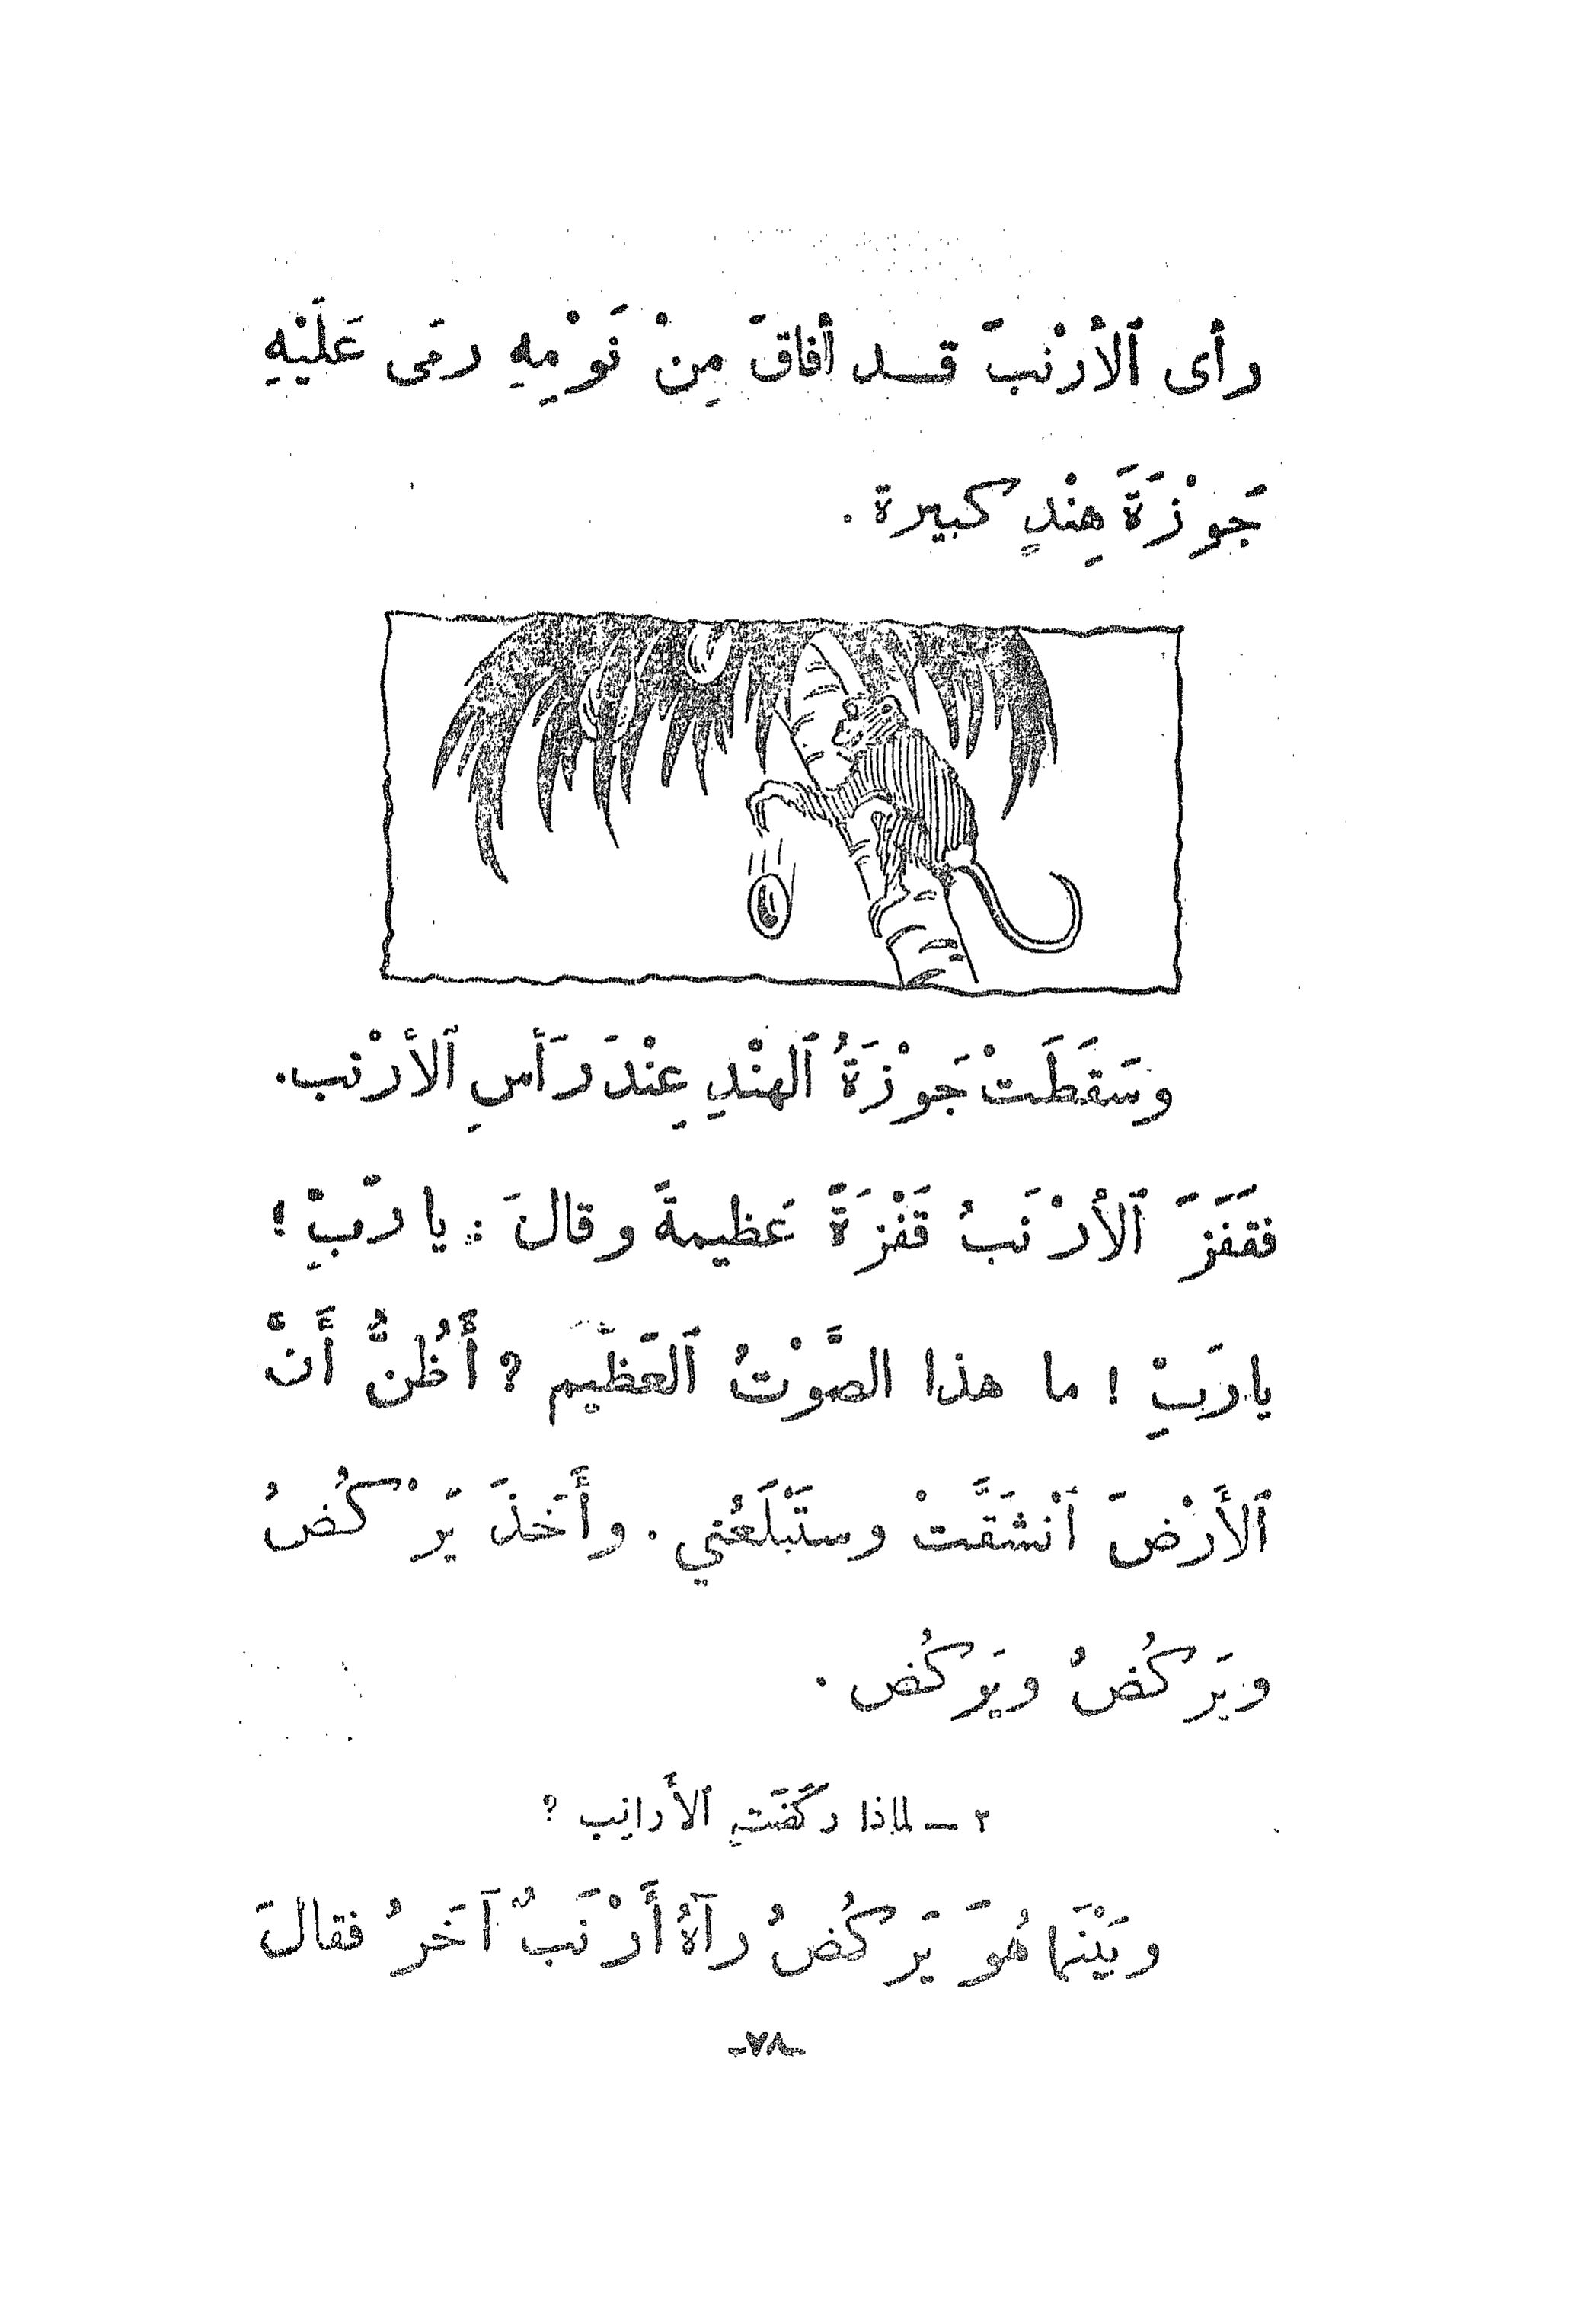 رأى ٱلأرْنبَ قـد أفاقَ مِنْ نَوْمِهِ رمَى عَلَيْهِ
جَوْزَةَ هِنْدٍ كبيرة .
وسَقَطَتْ جَوْزَةُ ٱلهنْدِ عِنْدَ رَأسِ ٱلأرْنب.
فقَفَزَ ٱلأرْنَبُ قَفْزَةً عَظيمةً وقالَ : يا ربِّ !
يا رَبِّ ! ما هذا الصَّوْتُ ٱلعَظيم ؟ أَظُنُّ أَنَّ
ٱلأَرْضَ ٱنْشَقَّتْ وستَبْلَعُني . وأَخَذَ يَرْكُضُ
ويَركُضُ ويَركُض .
٢ – لماذا ركَضَتِ ٱلأَرانِب ؟
وبَيْنَما هُوَ يَركُضُ رآهُ أَرْنَبٌ آخَرُ فقالَ
-٧٨-